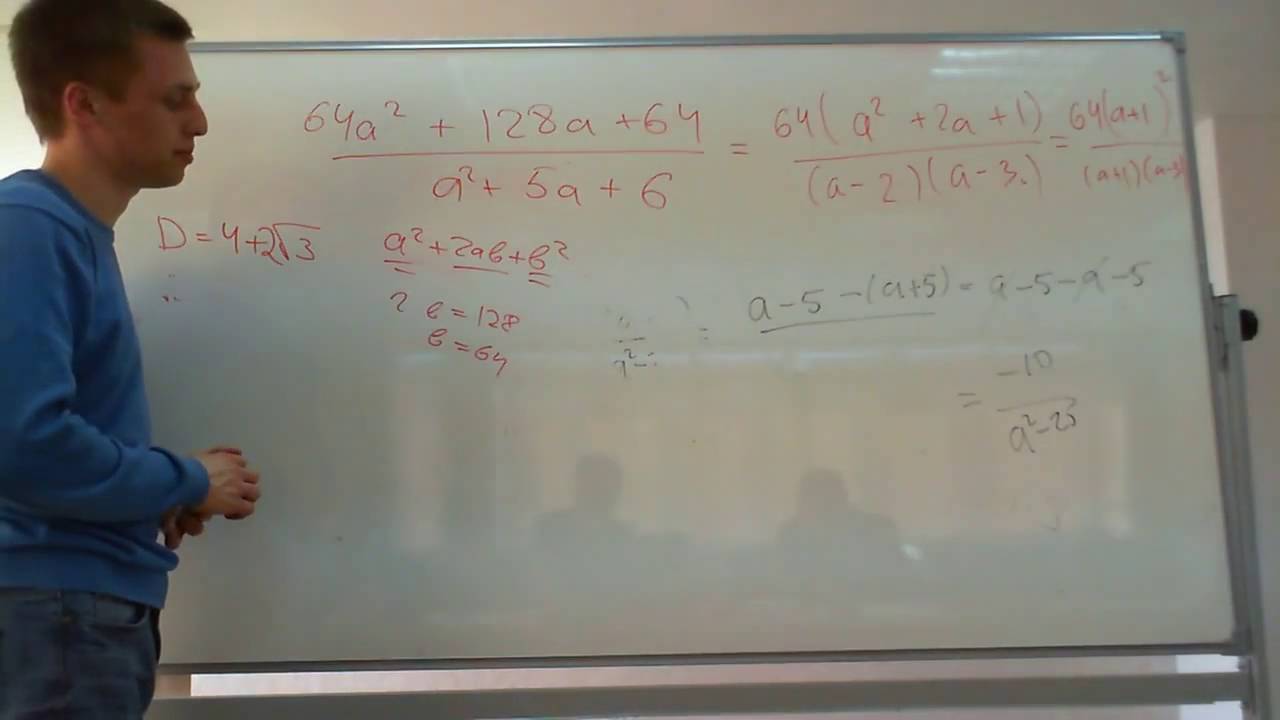 64a² + 128a + 64 / a² + 5a + 6 = 64(a² + 2a + 1) / (a - 2)(a - 3.) = 64(a+1)² / (a+1)(a-3)
D = 4 + 2√3
a² + 2ab + b²
2 b = 128
b = 64
= a - 5 - (a+5) = a - 5 - a - 5
= -10 / a² - 25